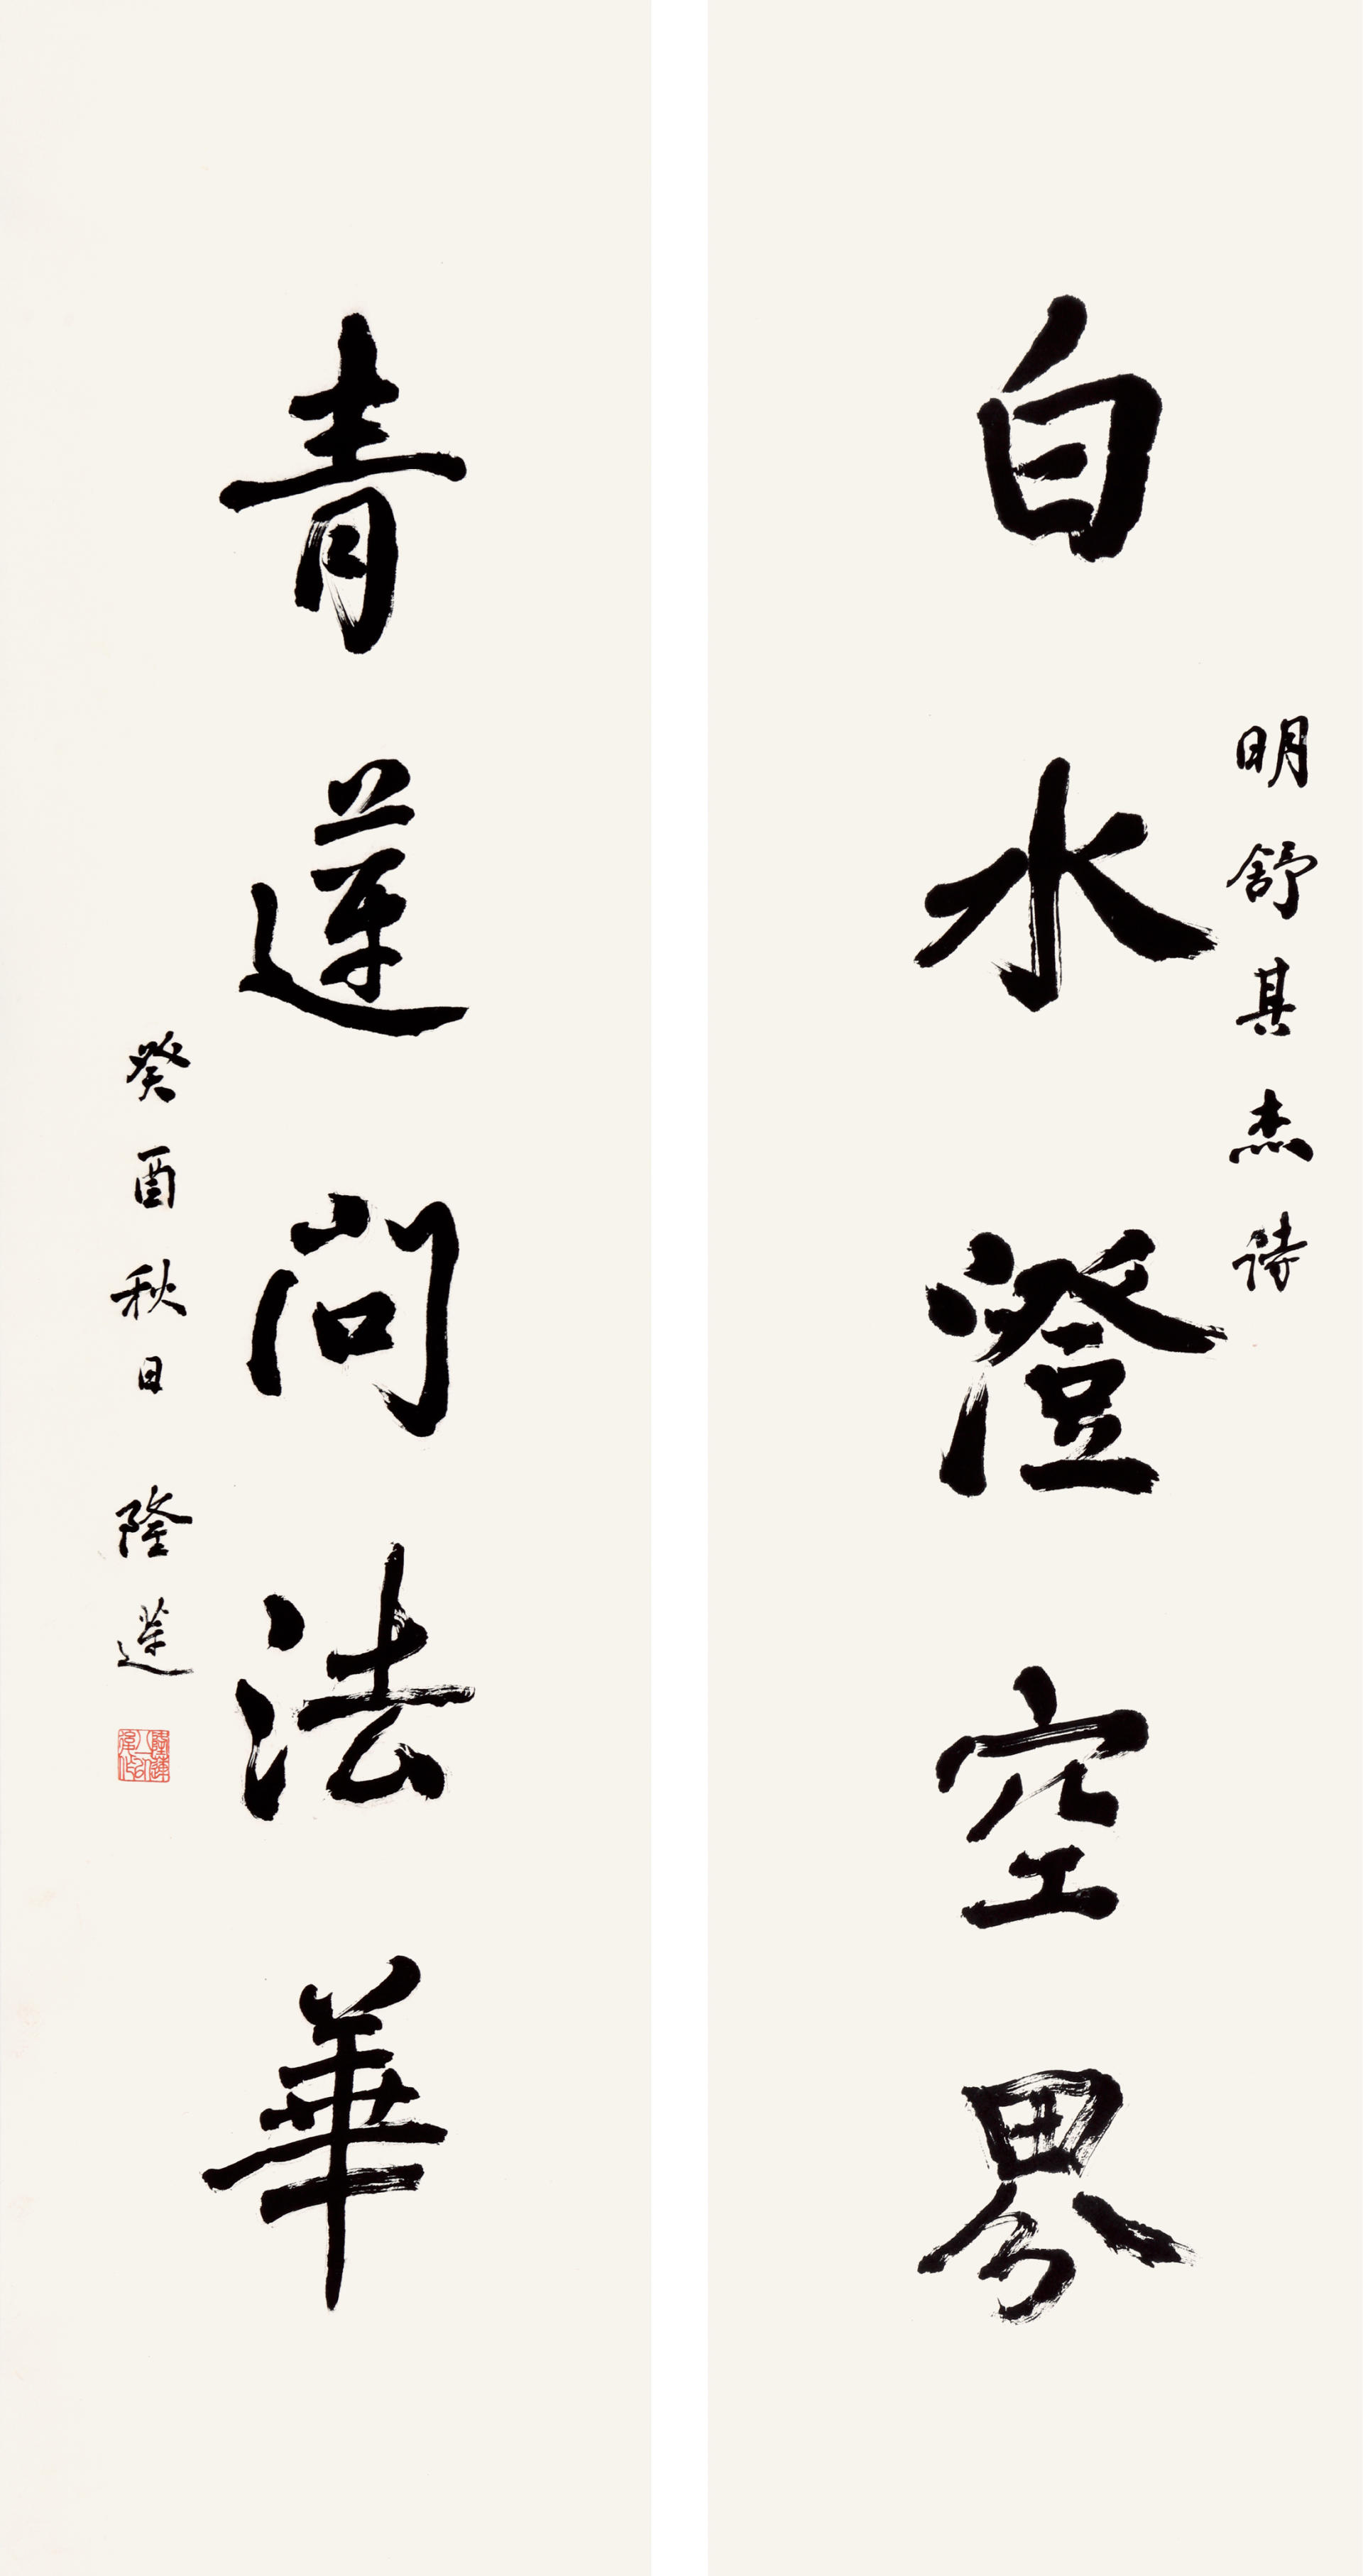 明舒其杰诗
白水澄空界
青莲问法華
癸酉秋日 隆莲